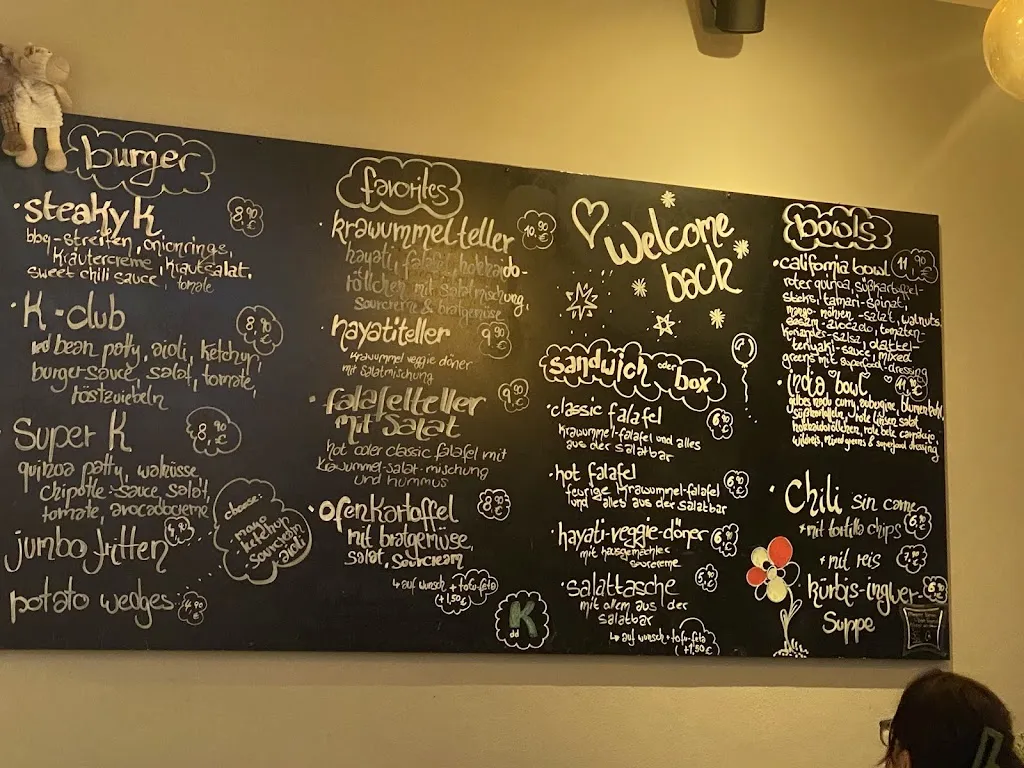 burger
steaky K 8,90 €
bbq-streifen, onionrings,
kräutercreme, krautsalat,
sweet chili sauce, tomate
K-club 8,90 €
red bean patty, aioli, ketchup,
burger-sauce, salat, tomate,
röstzwiebeln
Super K 8,90 €
quinoa patty, walnüsse,
chipotle-sauce, salat,
tomate, avocadocreme
jumbo fritten
potato wedges 4,90
choose:
mayo
ketchup
sourcream
aioli
favorites
krawummelteller 10,90 €
hayati, falafel, hokkaido-
röllchen mit salatmischung,
sourcreme & bratgemüse
hayatiteller 9,90 €
krawummel veggie döner
mit salatmischung
falafelteller 9,90 €
mit salat
hot oder classic falafel mit
krawummel-salat-mischung
und hummus
ofenkartoffel 8,90 €
mit bratgemüse,
salat, sourcream
↳ auf wunsch + tofu-feta
+1,50 €
dd K
welcome
back
sandwich oder box
classic falafel 6,90 €
krawummel-falafel und alles
aus der salatbar
hot falafel 6,90 €
feurige krawummel-falafel
und alles aus der salatbar
hayati-veggie-döner 6,90 €
mit hausgemachter
sourcreme
salattasche 5,90 €
mit allem aus der
salatbar
↳ auf wunsch + tofu-feta
+1,50 €
bowls
california bowl 11,90 €
roter quinoa, süßkartoffel-
sticks, tamari-spinat,
mango-möhren-salat, walnuts,
sesam-avocado, tomaten-
koriander-salsa, dattel
teriyaki-sauce, mixed
greens mit superfood-dressing
India bowl 11,90 €
gelbes mogu curry, aubergine, blumenkohl,
süßkartoffeln, rote linsen salat,
hokkaidoröllchen, rote bete carpaccio,
wildreis, mixed greens & superfood dressing
Chili sin carne
+ mit tortilla chips 6,90 €
+ mit reis 7,90 €
kürbis-ingwer- 6,90 €
Suppe